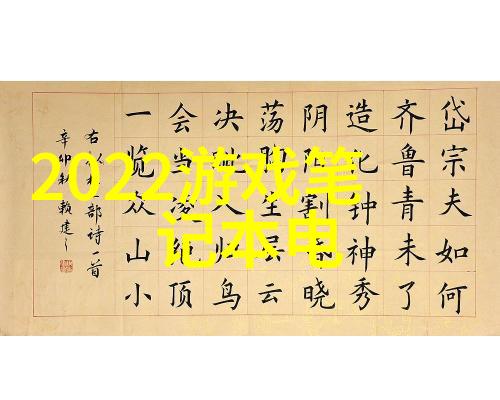 2022游戏笔
记本电
岱宗夫如何
齐鲁青未了
造化钟神秀
阴阳割昏晓
荡胸生云
决眦入归鸟
会当凌绝顶
一览众山小
右 部诗一首
辛卯秋 赖建